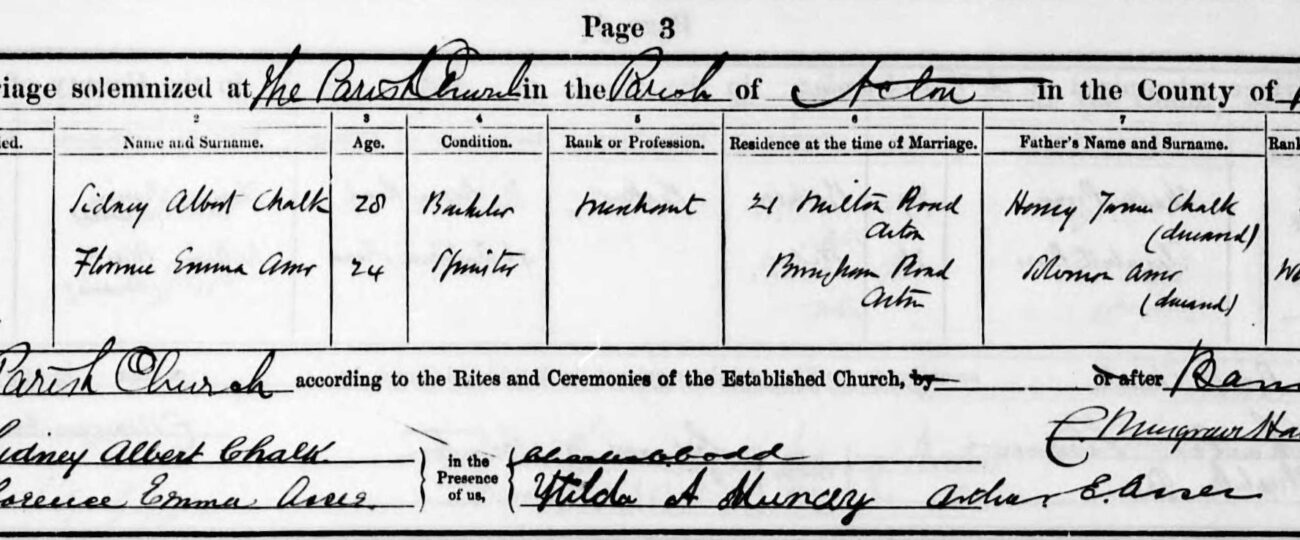 Page 3
riage solemnized at The Parish Church in the Parish of Acton in the County of
2 3 4 5 6 7
ied. Name and Surname. Age. Condition. Rank or Profession. Residence at the time of Marriage. Father's Name and Surname. Rank
Sidney Albert Chalk 28 Bachelor Merchant 21 Milton Road Henry James Chalk
Acton (deceased)
Florence Emma 24 Spinster Road Solomon
Acton (deceased)
Parish Church according to the Rites and Ceremonies of the Established Church, by or after Bann
C. Musgrave Ha
Sidney Albert Chalk in the
Presence
lorence Emma of us, A Muncey Arthur E.